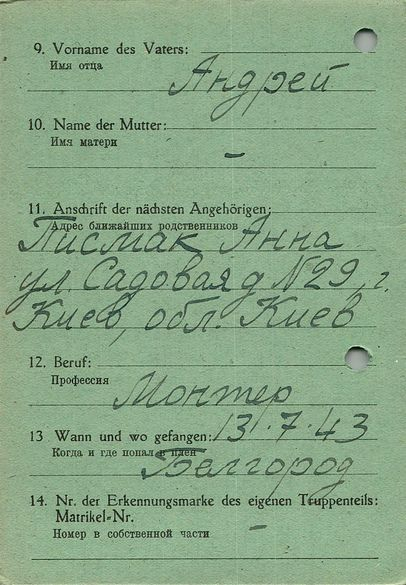 9. Vorname des Vaters:
Имя отца
Андрей
10. Name der Mutter:
Имя матери
–
11. Anschrift der nächsten Angehörigen:
Адрес ближайших родственников
Письмак Анна
ул. Садовая д N 29, г.
Киев, обл. Киев
12. Beruf:
Профессия
Монтер
13 Wann und wo gefangen: 13.7.43
Когда и где попал в плен
Белгород
14. Nr. der Erkennungsmarke des eigenen Truppenteils:
Matrikel-Nr.
Номер в собственной части
–